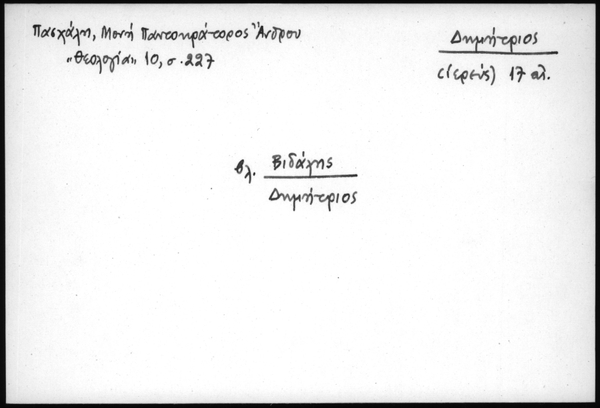 Πασχάλη, Μονή Παντοκράτορος Ἄνδρου
"Θεολογία" 10, σ. 227
Δημήτριος
(ἱερεύς) 17 αἰ.
βλ. Βιδάλης
Δημήτριος